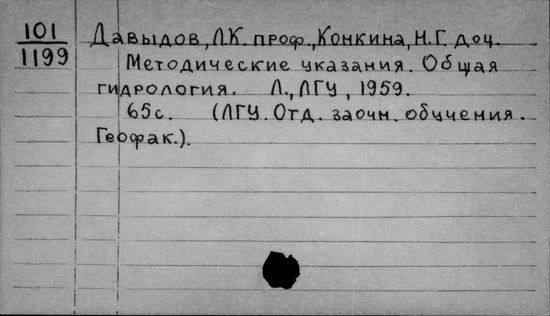 101
1199
Давыдов, Л.К. проф., Конкина, Н.Г. доц.
Методические указания. Общая
гидрология. Л., ЛГУ, 1959.
65с. (ЛГУ. Отд. заочн. обучения.
Геофак.).